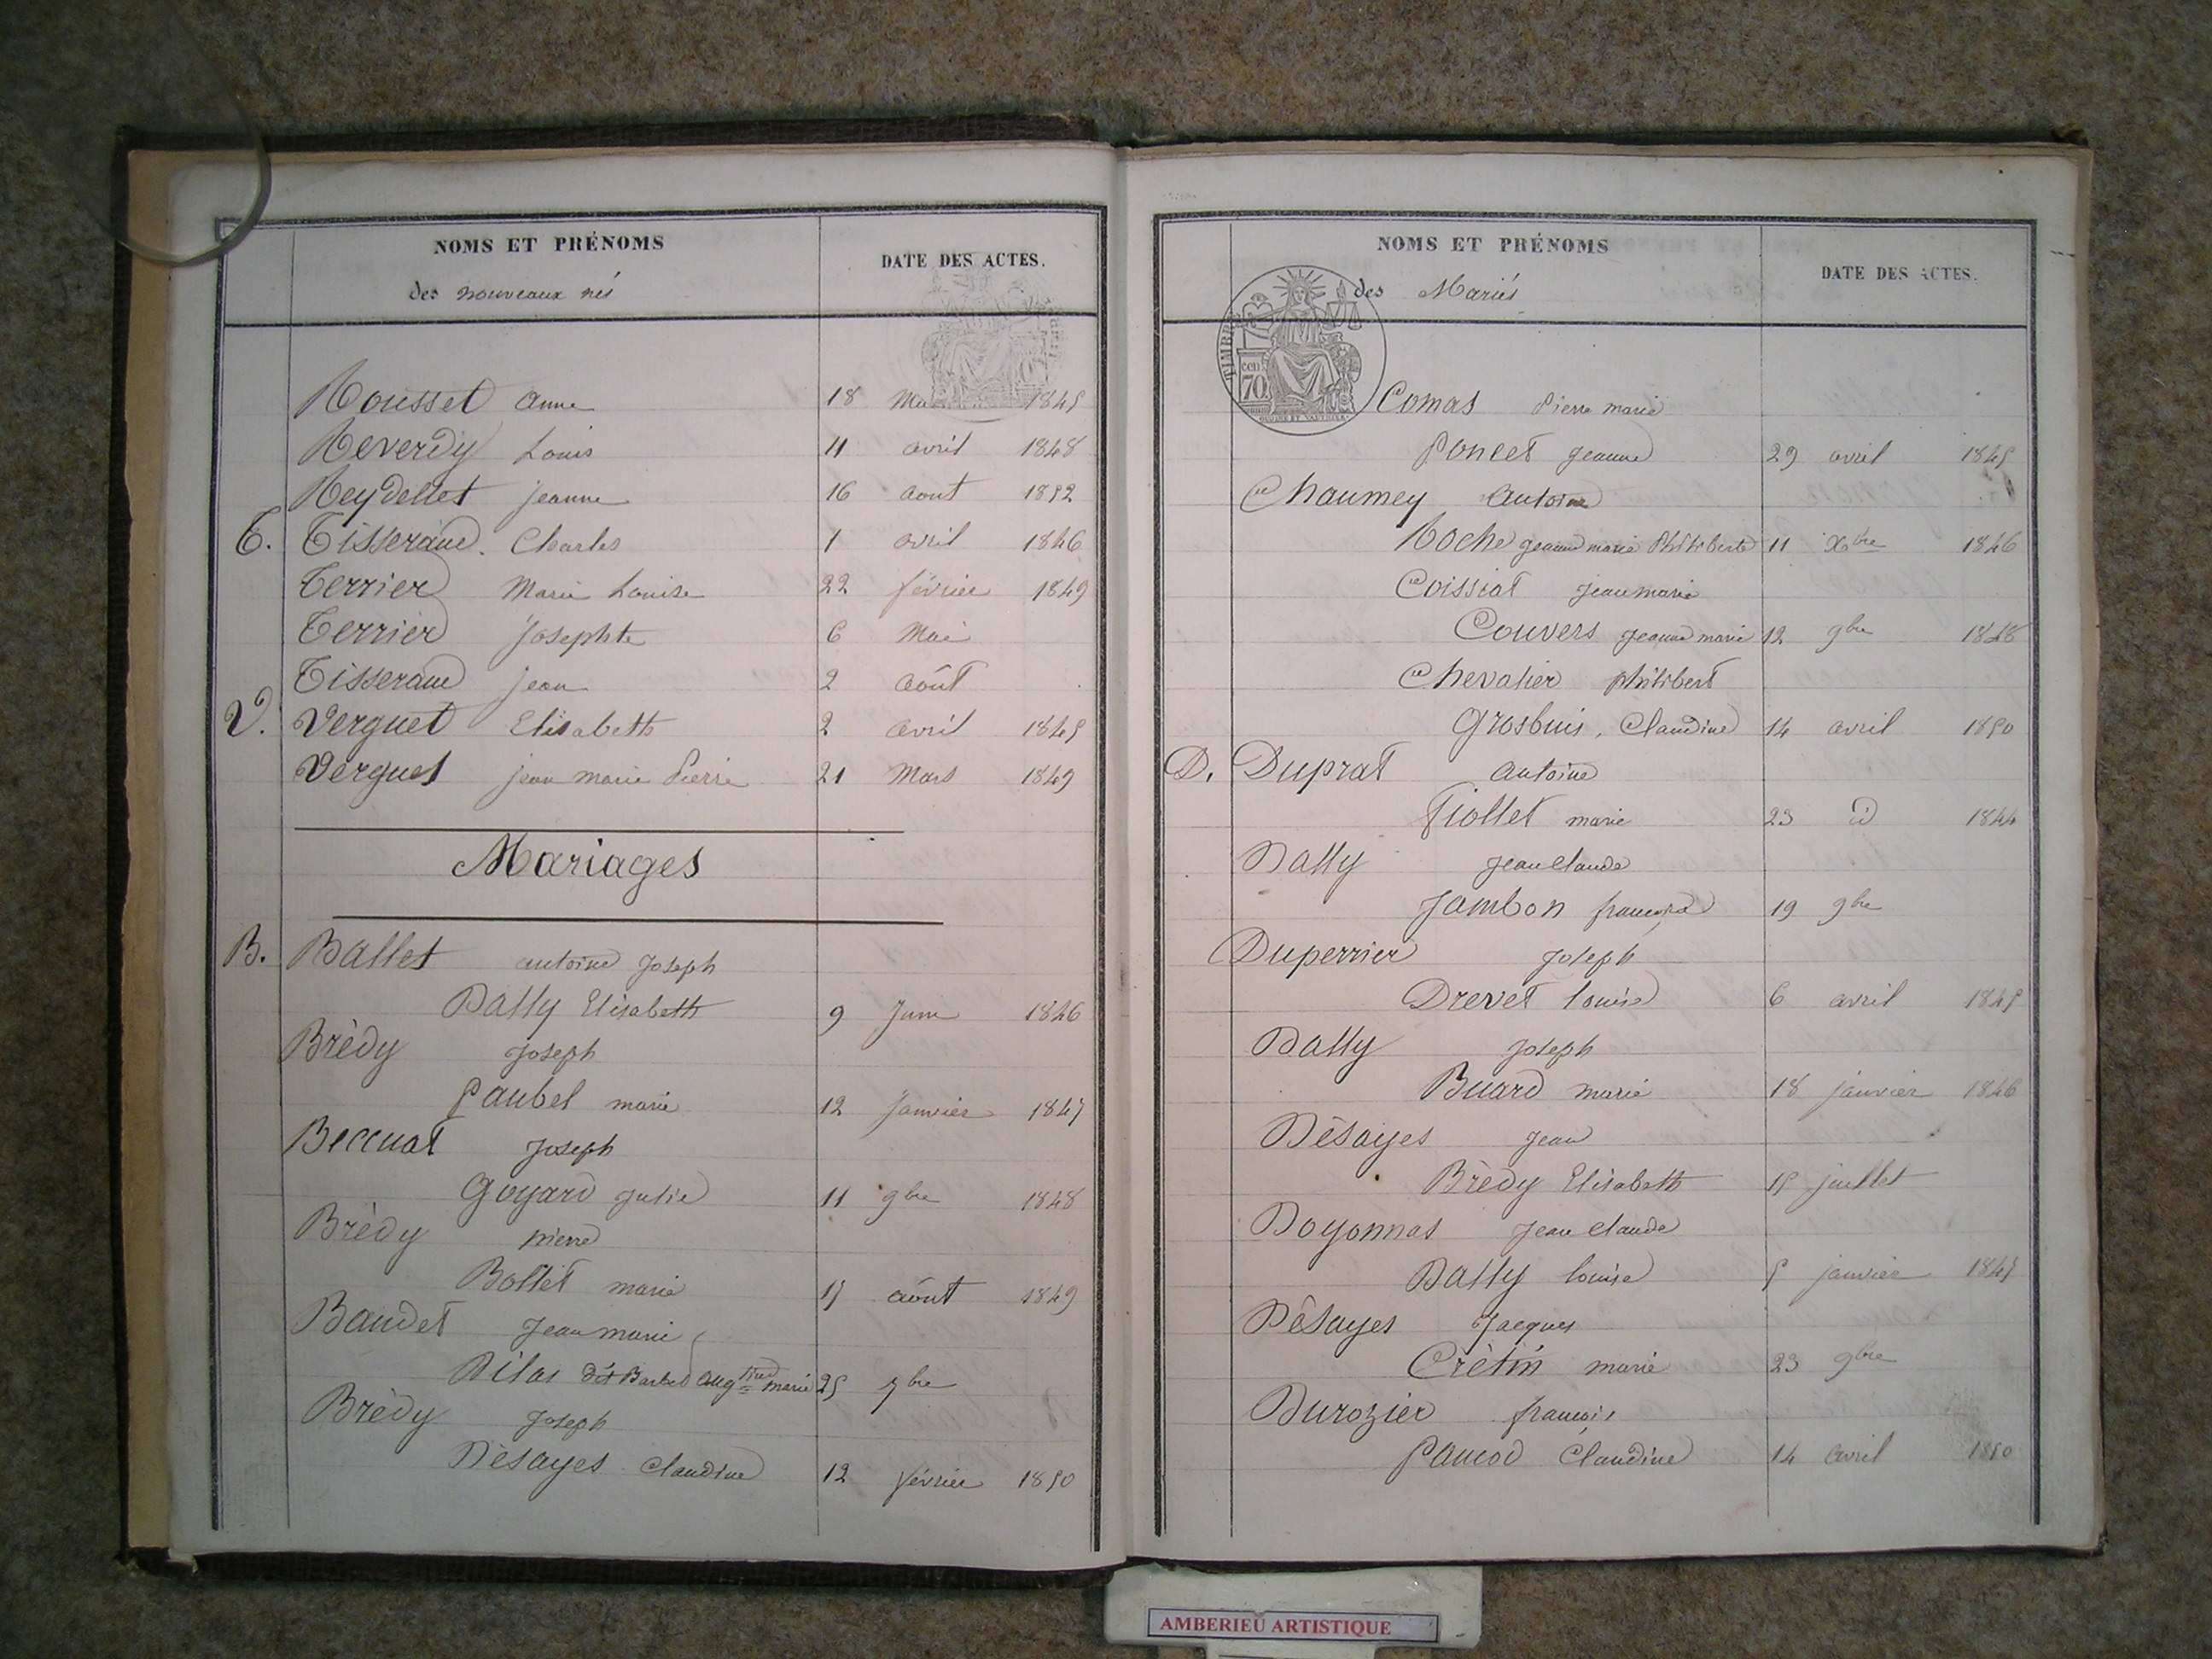 NOMS ET PRÉNOMS
des nouveaux nés
DATE DES ACTES.
Rousset Anne 18 Mai
Reverdy Louis 11 avril 1848
Reydellet Jeanne 16 Aout 1852
T. Tisserand. Charles 1 avril 1846
Terrier Marie Louise 22 février 1849
Terrier Josephte 6 Mai
Tisserand Jean 2 Aôut
V. Verguet Elisabeth 2 avril 1845
Verguet jean marie Pierre 21 Mars 1849
Mariages
B. Ballet antoine Joseph
Dally Elisabeth 9 Juin 1846
Brèdy Joseph
Paubel marie 12 Janvier 1847
Beccuat Joseph
Goyard Julie 11 9bre 1848
Brèdy pierre
Bollet marie aôut 1849
Baudet Jean marie
dit marie 25 bre
Brèdy Joseph
Dèsayes Claudine 12 février 1850
NOMS ET PRÉNOMS
des Mariés
DATE DES ACTES.
TIMBRE
70 cen
Comas Pierre marie
Poncet Jeanne 29 avril 1845
Chaumey Antoine
Roche Jeanne marie Philiberte 11 Xbre 1846
Coissiat Jean marie
Couvers Jeanne marie 12 9bre 1848
Chevalier philibert
Grosbuis, Claudine 14 avril 1850
D. Duprat Antoine
Fiollet marie 23 d 1844
Dally Jean Claude
Jambon françoise 19 9bre
Duperrier Joseph
Drevet louise 6 avril 1845
Dally Joseph
Buard marie 18 janvier 1846
Dèsayes Jean
Brèdy Elisabeth 15 juillet
Doyonnas Jean Claude
Dally louise 5 janvier
Dèsayes Jacques
Crètin marie 23 9bre
Durozier françois
Pancod Claudine 14 avril 1850
AMBERIEU ARTISTIQUE